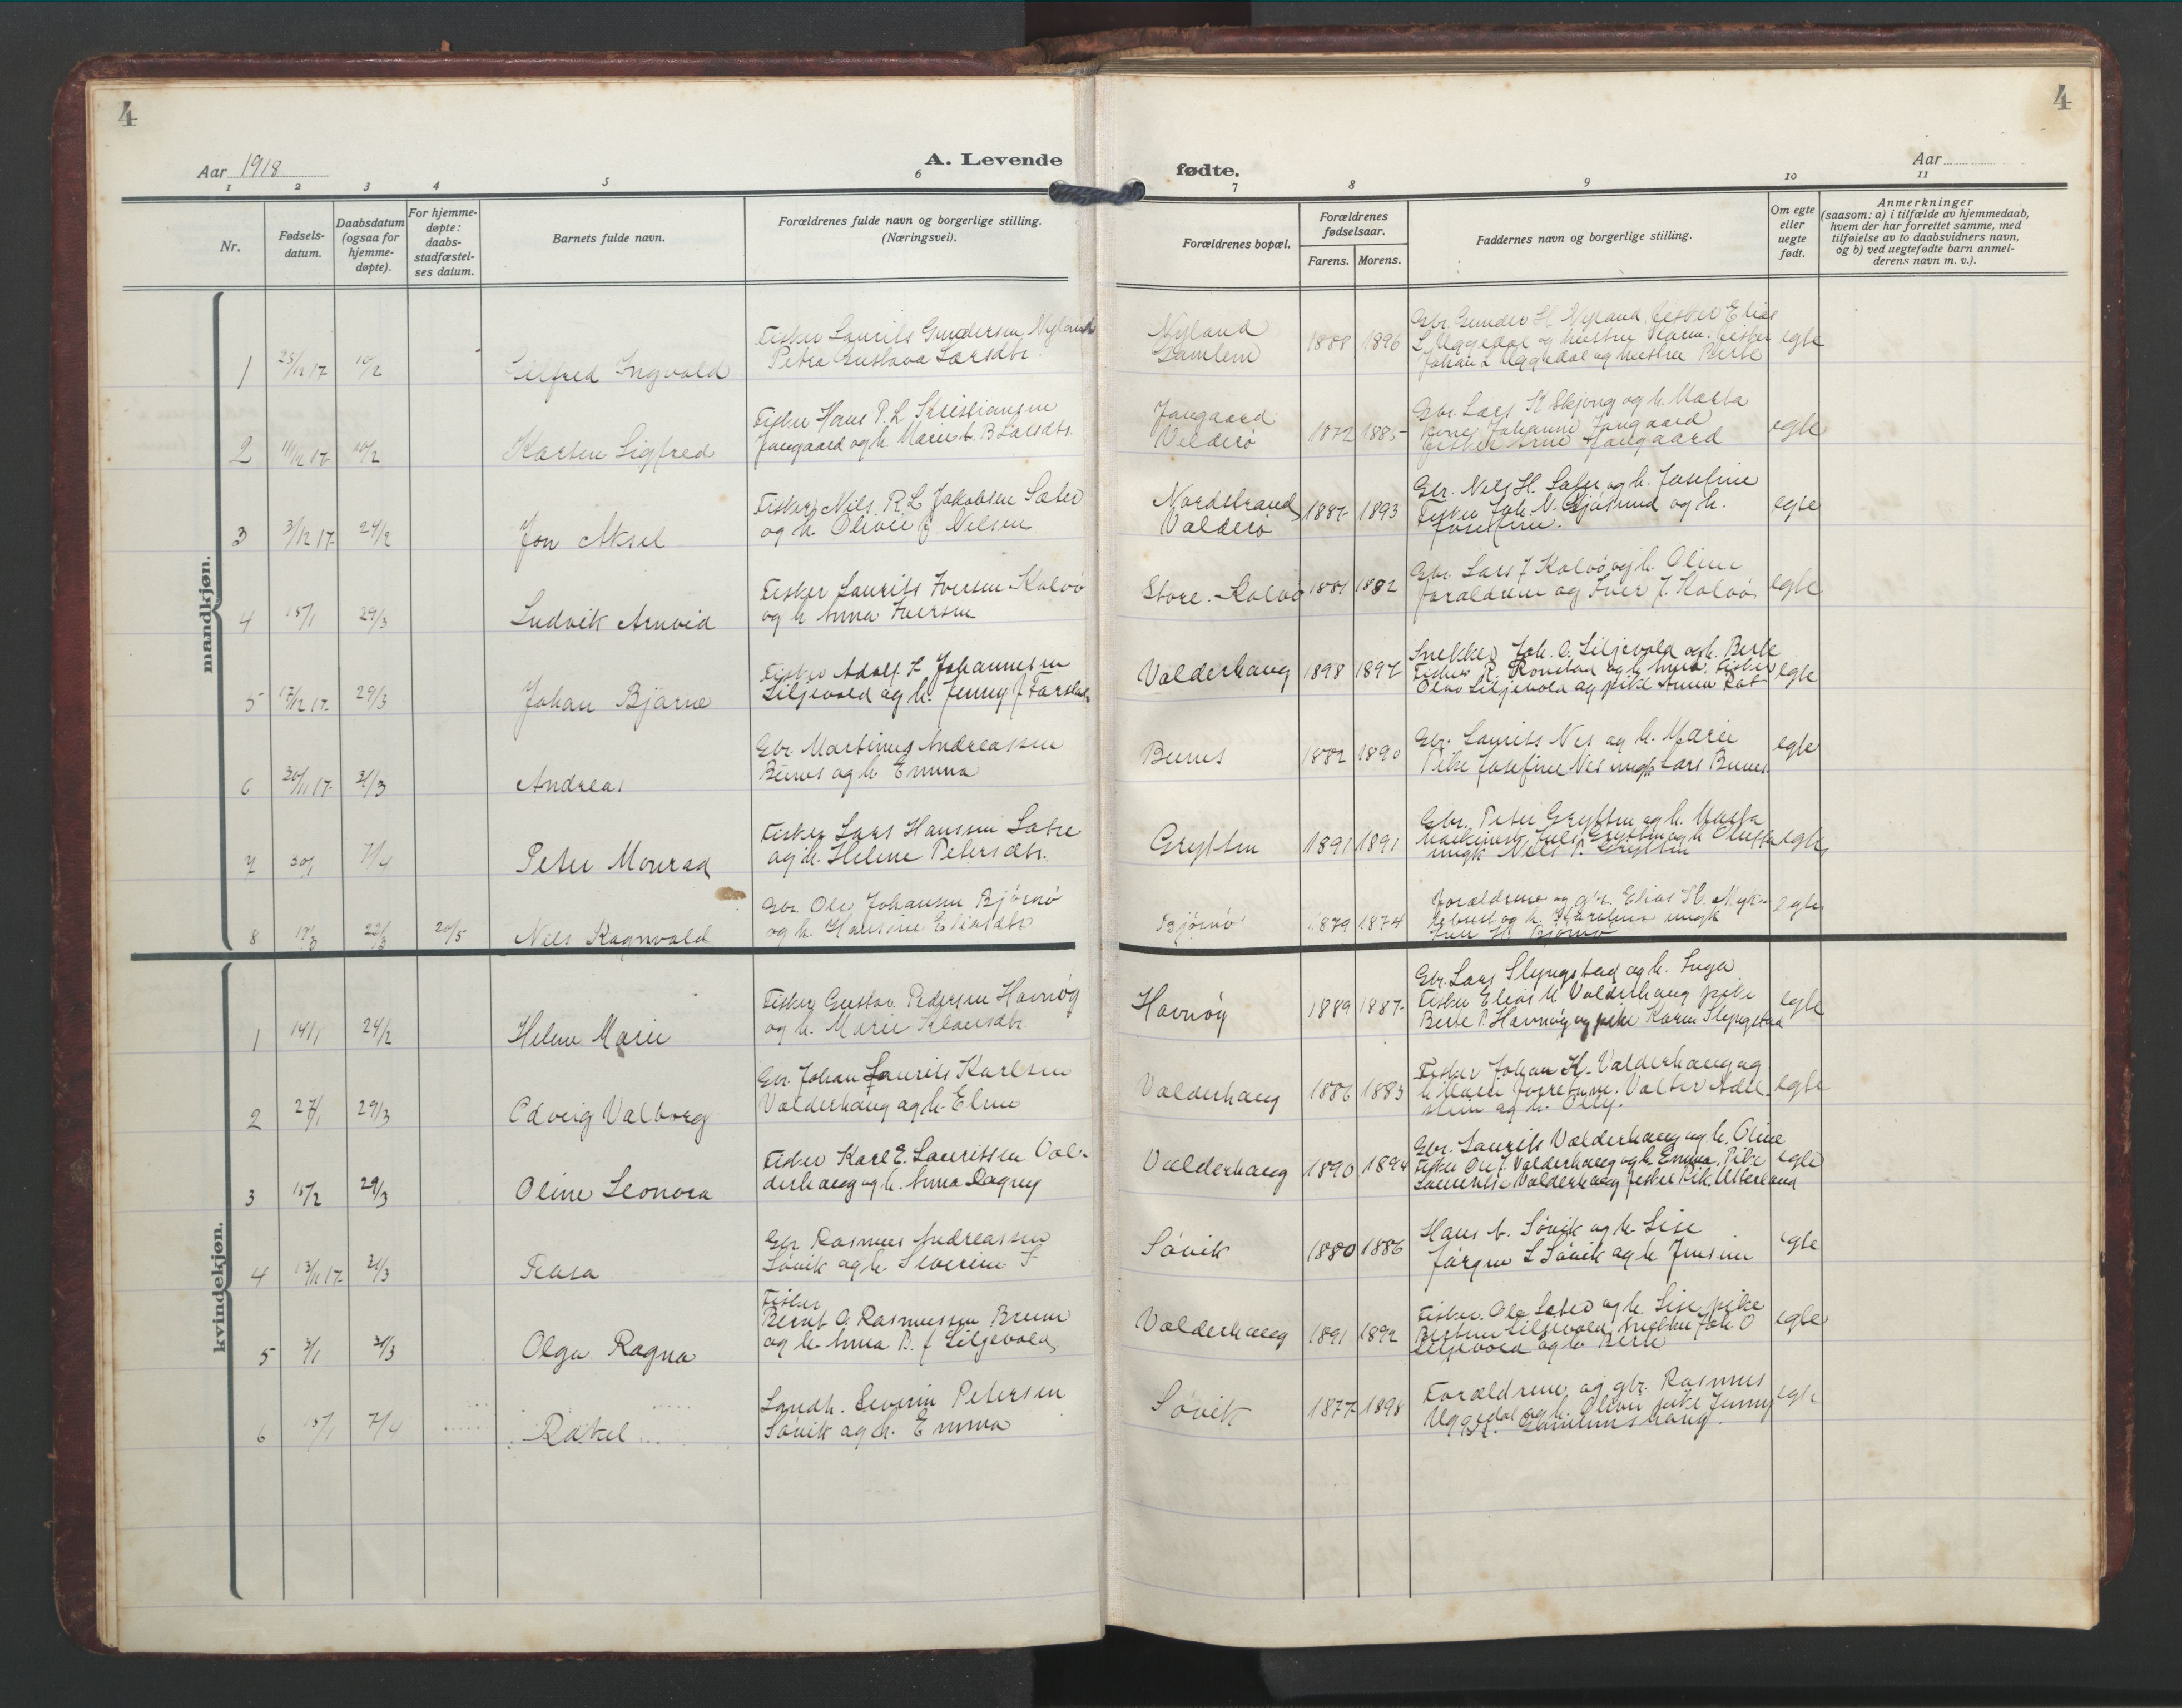 4
4
Aar 1918
A. Levende
fødte.
Aar
1 2 3 4 5 6 7 8 9 10 11
Nr.
Fødsels-
datum.
Daabsdatum
(ogsaa for
hjemme-
døpte).
For hjemme-
døpte:
daabs-
stadfæstel-
ses datum.
Barnets fulde navn.
Forældrenes fulde navn og borgerlige stilling.
(Næringsvei).
Forældrenes bopæl.
Forældrenes
fødselsaar.
Farens. Morens.
Faddernes navn og borgerlige stilling.
Om egte
eller
uegte
født.
Anmerkninger
(saasom: a) i tilfælde av hjemmedaab,
hvem der har forrettet samme, med
tilføielse av to daabsvidners navn,
og b) ved uegtefødte barn anmel-
derens navn m. v.).
mandkjøn.
1 25/12 17 10/2 Gilfred Ingvald
Fisker Laurits Gundersen Nyland
Petra Gustava Larsdtr.
Nyland
Gamlem
1888 1896
Gbr. Gunder H Nyland, fisker Elias
L Uggedal og hustru Karen. Fisker
Johan L Uggedal og hustru Berte
egte
2 11/12 17 10/2 Karsten Sigfred
Fisker Hans P. L Kristiansen
Jangaard og h. Marie L. B Larsdtr.
Jangaard
Valderø
1872 1885
Gbr. Lars K Skjong og h. Marta
Kone Johanne Jangaard
fisker Arne Jangaard
egte
3 3/12 17 24/2 Jon Aksel
Fisker Nils R. L Jakobsen Sæter
og h. Olivie J Nilsen
Nordstrand
Valderø
1887 1893
Gbr. Nils H. Sæter og h. Josefine
Fisker Joh. N. Gjøsund og h.
Josefine.
egte
4 15/1 29/3 Ludvik Arnvid
Fisker Laurits Iversen Kalvø
og h Anna Iversen
Store-Kalvø
1881 1882
Gbr. Lars J Kalvø og h. Oline
forældrene og Iver J. Kalvø
egte
5 17/12 17 29/3 Johan Bjarne
Fisker Adolf L Johannesen
Liljevold og h. Jenny J
Valderhaug
1898 1897
Snekker Joh. O. Liljevold og h. Berte
Fisker R. Ronstad og h. Anna. Fisker
Olav Liljevold og pike Anna
egte
6 30/11 17 31/3 Andreas
Gbr. Martinus Andreassen
Burns og h. Emma
Burns
1882 1890
Gbr. Laurits Nes og h. Marie
Pike Josefine Nes ungk Lars Burns
egte
7 30/1 7/4 Peter Monrad
Fisker Lars Hanssen Sætre
og h. Helene Petersdtr.
Grytten
1891 1891
Gbr. Peter Grytten og h. Marta
maskinist Juls Grytten og h
ungk Nils P. Grytten
egte
8 19/3 22/3 20/5 Nils Ragnvald
Gbr. Ole Johansen Bjørnø
og h. Hansine Eliasdtr
Bjørnø
1879 1874
Forældrene og gbr. Elias H. Mykle-
bust og h. Karoline ungk
Bjørnø
egte
kvindekjøn.
1 14/1 24/2 Helene Marie
Fisker Gustav Pedersen Havnøy
og h. Marie Klausdtr.
Havnøy
1889 1887
Gbr. Lars Slyngstad og h. Inga
Fisker Elias M Valderhaug pike
Berte P. Havnøy og pike Karen Slyngstad
egte
2 27/1 29/3 Odveig Valborg
Gbr. Johan Laurits Karlsen
Valderhaug og h. Eline
Valderhaug
1886 1883
Fisker Johan K. Valderhaug og
h Marie forretnm. Valter Adel-
sten og h. Olly.
egte
3 15/2 29/3 Oline Leonora
Fisker Karl E. Lauritssen Val-
derhaug og h. Anna Dagny
Valderhaug
1890 1894
Gbr. Laurits Valderhaug og h. Oline
Fisker Ole J. Valderhaug og h Emma. Pike
Laurentse Valderhaug fisker Rik. Urkeland
egte
4 13/12 17 31/3 Rasa
Gbr Rasmus Andreassen
Søvik og h. Severine S
Søvik
1880 1886
Hans A. Søvik og h. Lise
Jørgen L Søvik og h Jensine
egte
5 3/1 31/3 Olga Ragna
Fisker
Bernt O. Rasmussen Bruun
og h. Anna B. f Liljevold
Valderhaug
1891 1892
Fisker. Ole Sæter og h. Lise pike
Bertine Liljevold snekker Joh. O
Liljevold og h Berte
egte
6 15/1 7/4 Rakel
Landh. Severin Petersen
Søvik og h. Emma
Søvik
1877 1898
Forældrene og gbr. Rasmus
Uggedal og h. Oline pike Jenny
Gammelshaug.
egte